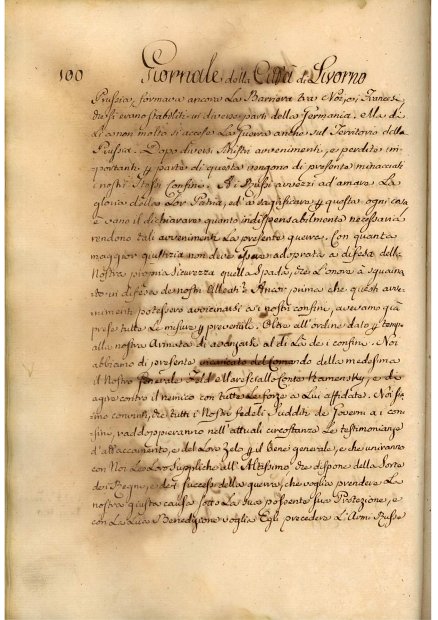 100 Giornale della Città di Livorno
Prussia, formava ancora La Barriera tra Noi, ei Francesi,
che si erano stabiliti in diverse parti della Germania. Ma di
lì a non molto si accese La Guerra anche sul Territorio della
Prussia. Dopo diversi sinistri avvenimenti, e perdite im-
portanti per parte di questa vengono di presente minacciati
i nostri stessi Confini. Ai Russi avvezzi ad amare La
gloria della Lor Patria, ed a sagrificare per questa ogni cosa
è vano il dichiarare quanto indispensabilmente necessaria
rendono tali avvenimenti La presente guerra. Con quanta
maggior giustizia non deve essere adoprata a difesa della
Nostra propria sicurezza quella Spada, che L'onore à sguaina
to in difesa de nostri Alleati? Ancor prima che questi avve-
nimenti potessero avvicinarsi ai nostri confini, avevamo già
prese tutte Le misure per prevenirli. Oltre all'ordine dato per tempo
alla nostra Armata di avanzarsi al di Là de i confini. Noi
abbiamo di presente incaricato del Comando della medesima
il Nostro Generale Feld Maresciallo Conte Kamensky, e di
agire contro il nemico con tutte Le forze a Lui affidate. Noi sia
mo convinti, che tutti i Nostri fedeli Sudditi de Governi a i con
fini, raddoppieranno nell'attuali circostanze Le testimonianze
d'attaccamento, e del Loro Zelo per il bene generale, e che uniranno
con Noi Le Loro Suppliche all'Altissimo che dispone della Sorte
dei Regni, e dei successi della guerra, che voglia prendere La
nostra giusta causa sotto La sua possente sua Protezione, e
con La Sua Benedizione voglia Egli precedere L'Armi Russe